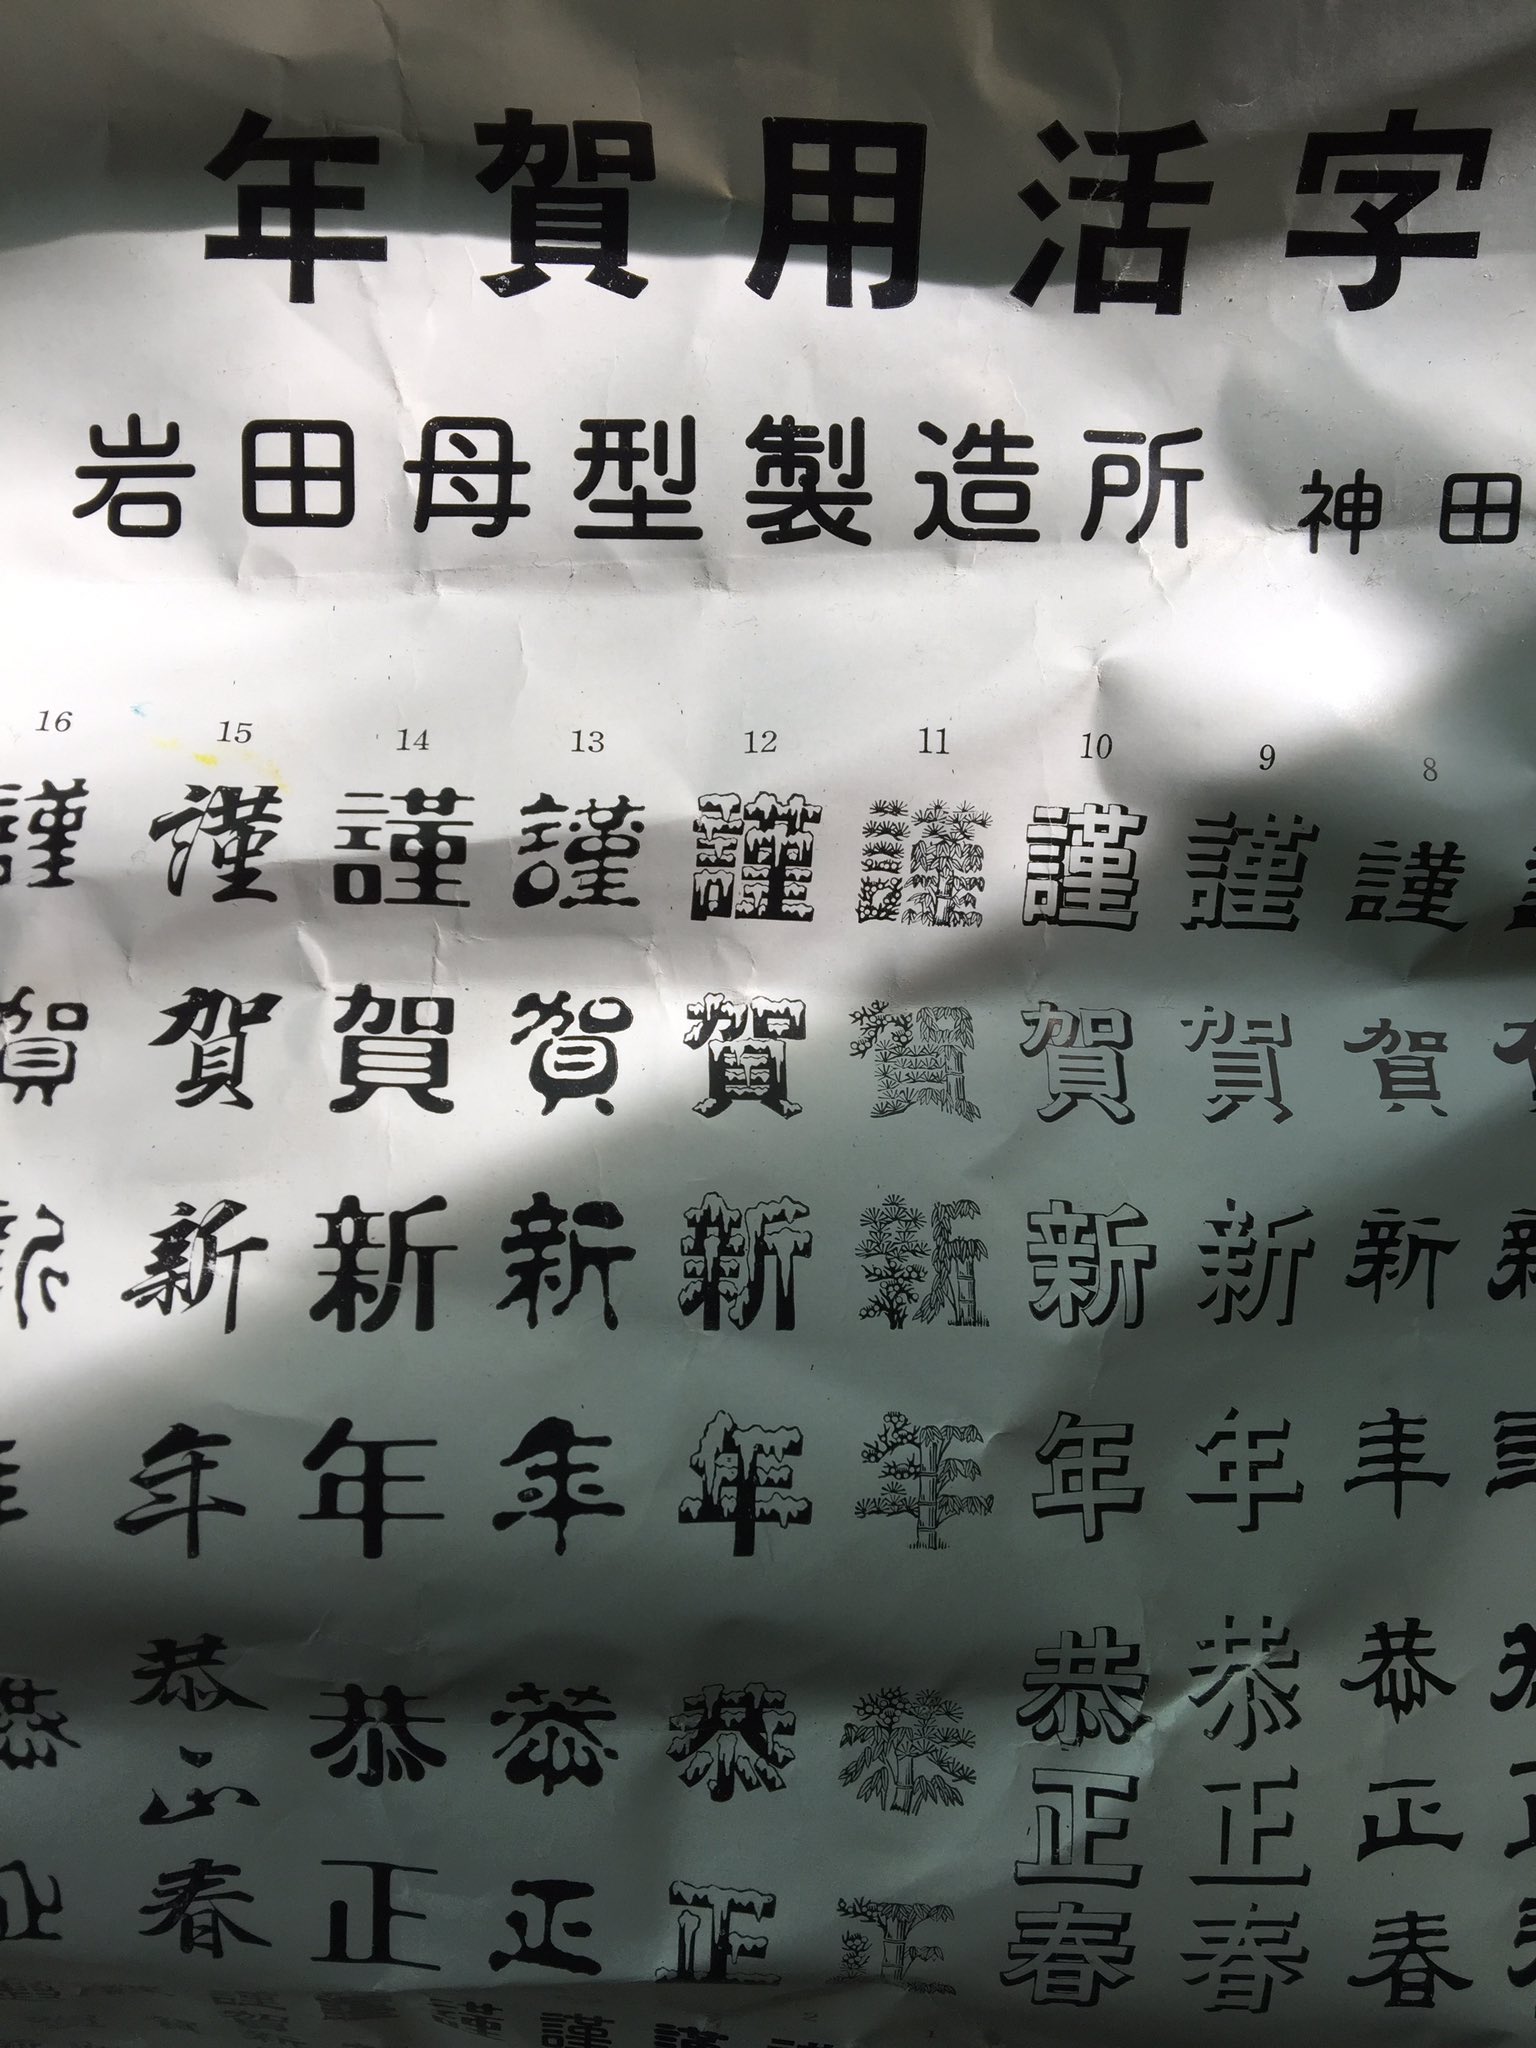 年賀用活字
岩田母型製造所 神田
16 15 14 13 12 11 10 9 8
謹賀新年 恭正春
謹賀新年 恭正春
謹賀新年 恭正春
謹賀新年 恭正
謹賀新年 恭正
謹賀新年 恭正
謹賀新年 恭正
謹賀新年 恭正春
謹賀新 恭正